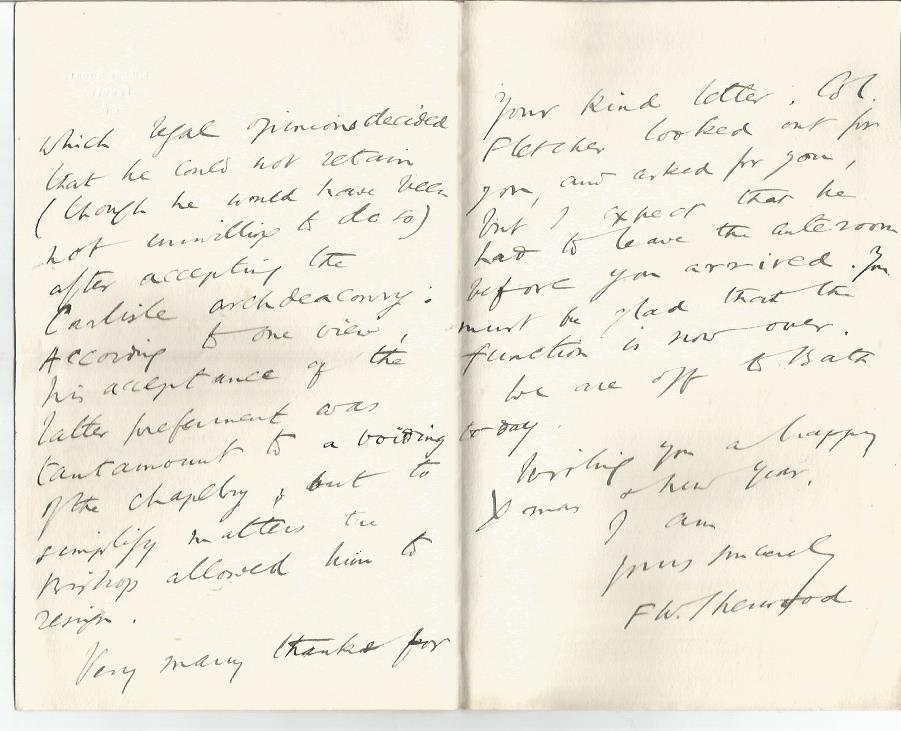 which legal opinions decided
that he could not retain
(though he would have been
not unwilling to do so)
after accepting the
Carlisle archdeaconry:
According to one view,
his acceptance of the
latter preferment was
tantamount to a voiding
of the chaplcy, but to
simplify matters the
Bishop allowed him to
resign.
Very many thanks for
your kind letter. Col.
Fletcher looked out for
you, and asked for you,
but I expect that he
had to leave the anteroom
before you arrived. You
must be glad that the
function is now over.
We are off to Bath
to-day.
Wishing you a happy
Xmas & New Year,
I am
yours sincerely
F W. Sherwood